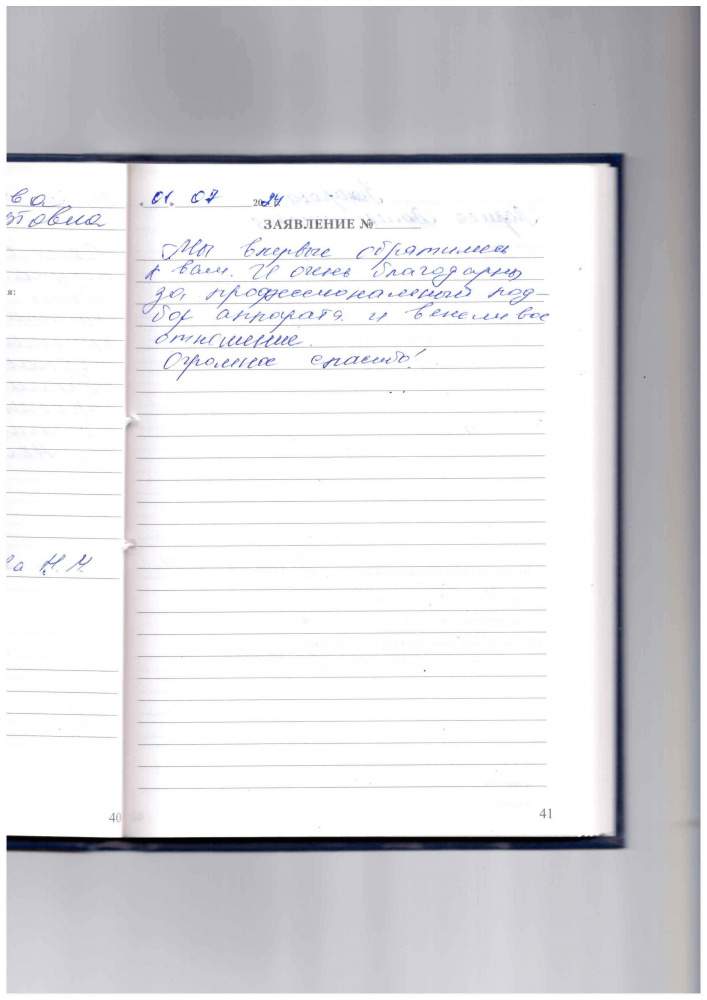 ва
товна
я:
а Н. М.
40
„01“ 07 2024
ЗАЯВЛЕНИЕ №
Мы впервые обратились
к вам. И очень благодарны
за, профессиональный под-
бор аппарата и вежливое
отношение.
Огромное спасибо!
41